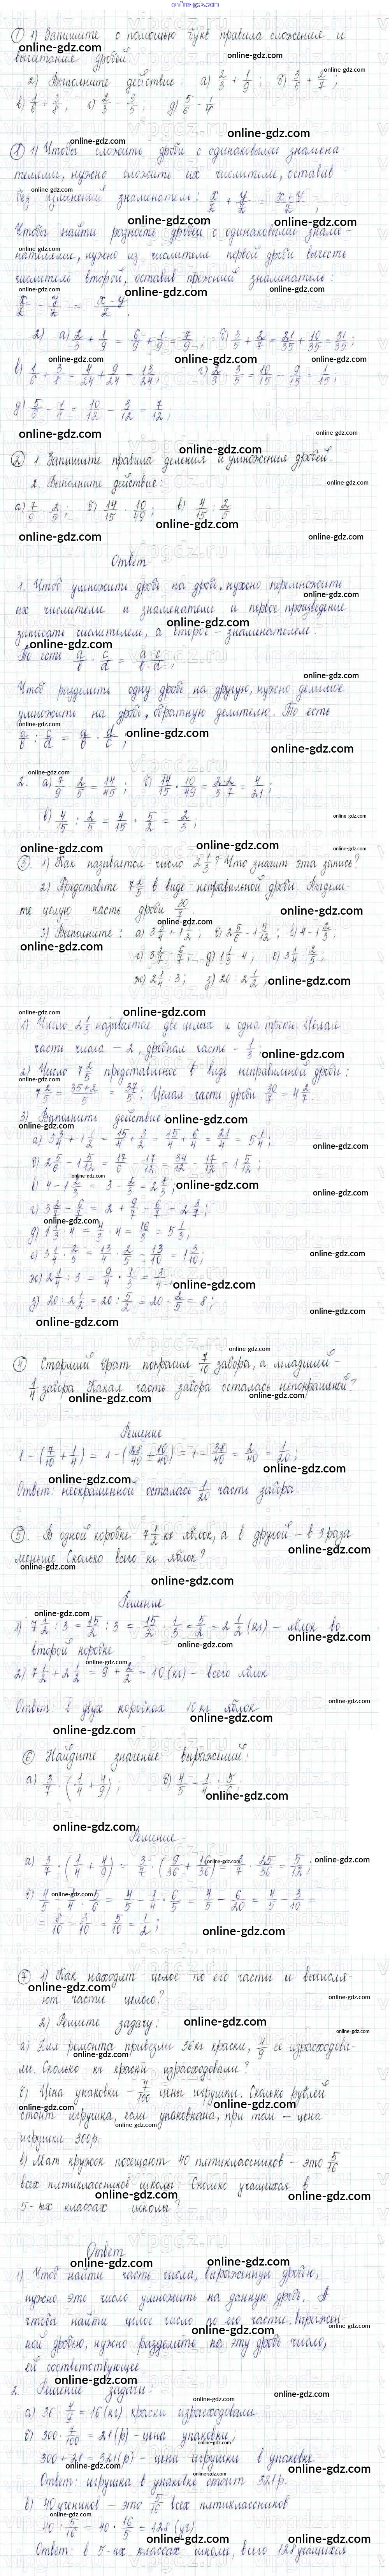 online-gdz.com
① 1) Запишите с помощью букв правила сложения и
вычитания дробей.
2) Выполните действие: а) 2/3 + 1/9; б) 3/5 + 2/7;
в) 1/6 + 3/8; г) 2/3 - 3/5; д) 5/6 - 1/4
① 1) Чтобы сложить дроби с одинаковыми знамена-
телями, нужно сложить их числители, оставив
без изменений знаменатель: x/z + y/z = x+y/z;
Чтобы найти разность дробей с одинаковыми знаме-
нателями, нужно из числителя первой дроби вычесть
числитель второй, оставив прежний знаменатель:
x/z - y/z = x-y/z.
2) а) 2/3 + 1/9 = 6/9 + 1/9 = 7/9; б) 3/5 + 2/7 = 21/35 + 10/35 = 31/35;
в) 1/6 + 3/8 = 4/24 + 9/24 = 13/24; г) 2/3 - 3/5 = 10/15 - 9/15 = 1/15;
д) 5/6 - 1/4 = 10/12 - 3/12 = 7/12;
② 1. Запишите правила деления и умножения дробей.
2. Выполните действие:
а) 7/9 · 2/5; б) 14/15 · 10/49; в) 4/15 : 2/5
Ответ
1. Чтоб умножить дробь на дробь, нужно перемножить
их числители и знаменатели и первое произведение
записать числителем, а второе – знаменателем.
То есть a/b · c/d = a·c/b·d;
Чтоб разделить одну дробь на другую, нужно делимое
умножить на дробь, обратную делителю. То есть
a/b : c/d = a/b · d/c;
2. а) 7/9 · 2/5 = 14/45; б) 14/15 · 10/49 = 2·2/3·7 = 4/21;
в) 4/15 : 2/5 = 4/15 · 5/2 = 2/3;
③ 1) Как называется число 2 1/3? Что значит эта запись?
2) Представьте 7 2/5 в виде неправильной дроби. Выдели-
те целую часть дроби 30/7
3) Выполните: а) 3 3/4 + 1 1/2; б) 2 5/6 - 1 5/12; в) 4 - 1 2/3;
г) 3 2/7 - 6/7; д) 1 1/3 · 4; е) 3 1/4 · 2/5;
ж) 2 1/4 : 3; з) 20 : 2 1/2;
1) Число 2 1/3 называется две целых и одна треть. Целая
часть числа – 2, дробная часть – 1/3;
2) Число 7 2/5 представленное в виде неправильной дроби:
7 2/5 = 35+2/5 = 37/5; Целая часть дроби 30/7 = 4 2/7.
3) Выполнить действие
а) 3 3/4 + 1 1/2 = 15/4 + 3/2 = 15/4 + 6/4 = 21/4 = 5 1/4;
б) 2 5/6 - 1 5/12 = 17/6 - 17/12 = 34/12 - 17/12 = 1 5/12;
в) 4 - 1 2/3 = 3 - 2/3 = 2 1/3;
г) 3 2/7 - 6/7 = 2 + 9/7 - 6/7 = 2 3/7;
д) 1 1/3 · 4 = 4/3 · 4 = 16/3 = 5 1/3;
е) 3 1/4 · 2/5 = 13/4 · 2/5 = 13/10 = 1 3/10;
ж) 2 1/4 : 3 = 9/4 · 1/3 = 3/4;
з) 20 : 2 1/2 = 20 : 5/2 = 20 · 2/5 = 8;
④ Старший брат покрасил 7/10 забора, а младший –
1/4 забора. Какая часть забора осталась непокрашеной?
Решение
1 - (7/10 + 1/4) = 1 - (28/40 + 10/40) = 1 - 38/40 = 2/40 = 1/20;
Ответ: неокрашенной осталась 1/20 часть забора
⑤. В одной коробке 7 1/2 кг яблок, а в другой – в 3 раза
меньше. Сколько всего кг яблок?
Решение
1) 7 1/2 : 3 = 15/2 : 3 = 15/2 · 1/3 = 5/2 = 2 1/2 (кг) – яблок во
второй коробке
2) 7 1/2 + 2 1/2 = 9 + 2/2 = 10 (кг) – всего яблок
Ответ: в двух коробках 10 кг яблок
⑥ Найдите значение выражений:
а) 3/7 · (1/4 + 4/9); б) 4/5 - 1/4 : 5/6;
Решение
а) 3/7 · (1/4 + 4/9) = 3/7 · (9/36 + 16/36) = 3/7 · 25/36 = 5/12;
б) 4/5 - 1/4 : 5/6 = 4/5 - 1/4 · 6/5 = 4/5 - 6/20 = 4/5 - 3/10 =
= 8/10 - 3/10 = 5/10 = 1/2;
⑦ 1) Как находят целое по его части и вычисля-
ют части целого?
2) Решите задачу:
а) Для ремонта привезли 36 кг краски, 4/9 её израсходова-
ли. Сколько кг краски израсходовали?
б) Цена упаковки – 7/100 цены игрушки. Сколько рублей
стоит игрушка, если упакована, при том – цена
игрушки 300 р.
в) Мат. кружок посещают 40 пятиклассников – это 5/16
всех пятиклассников школы. Сколько учащихся в
5-ых классах школы?
Ответ
1) Чтоб найти часть числа, выраженную дробью,
нужно это число умножить на данную дробь. А
чтобы найти целое число по его части, выражен-
ной дробью, нужно разделить на эту дробь число,
ей соответствующее.
2. Решение задачи:
а) 36 · 4/9 = 16 (кг) краски израсходовали
б) 300 · 7/100 = 21 (р) – цена упаковки;
300 + 21 = 321 (р) – цена игрушки в упаковке
Ответ: игрушка в упаковке стоит 321 р.
в) 40 учеников – это 5/16 всех пятиклассников
40 : 5/16 = 40 · 16/5 = 128 (уч)
Ответ: в 5-ых классах школы, всего 128 учащихся